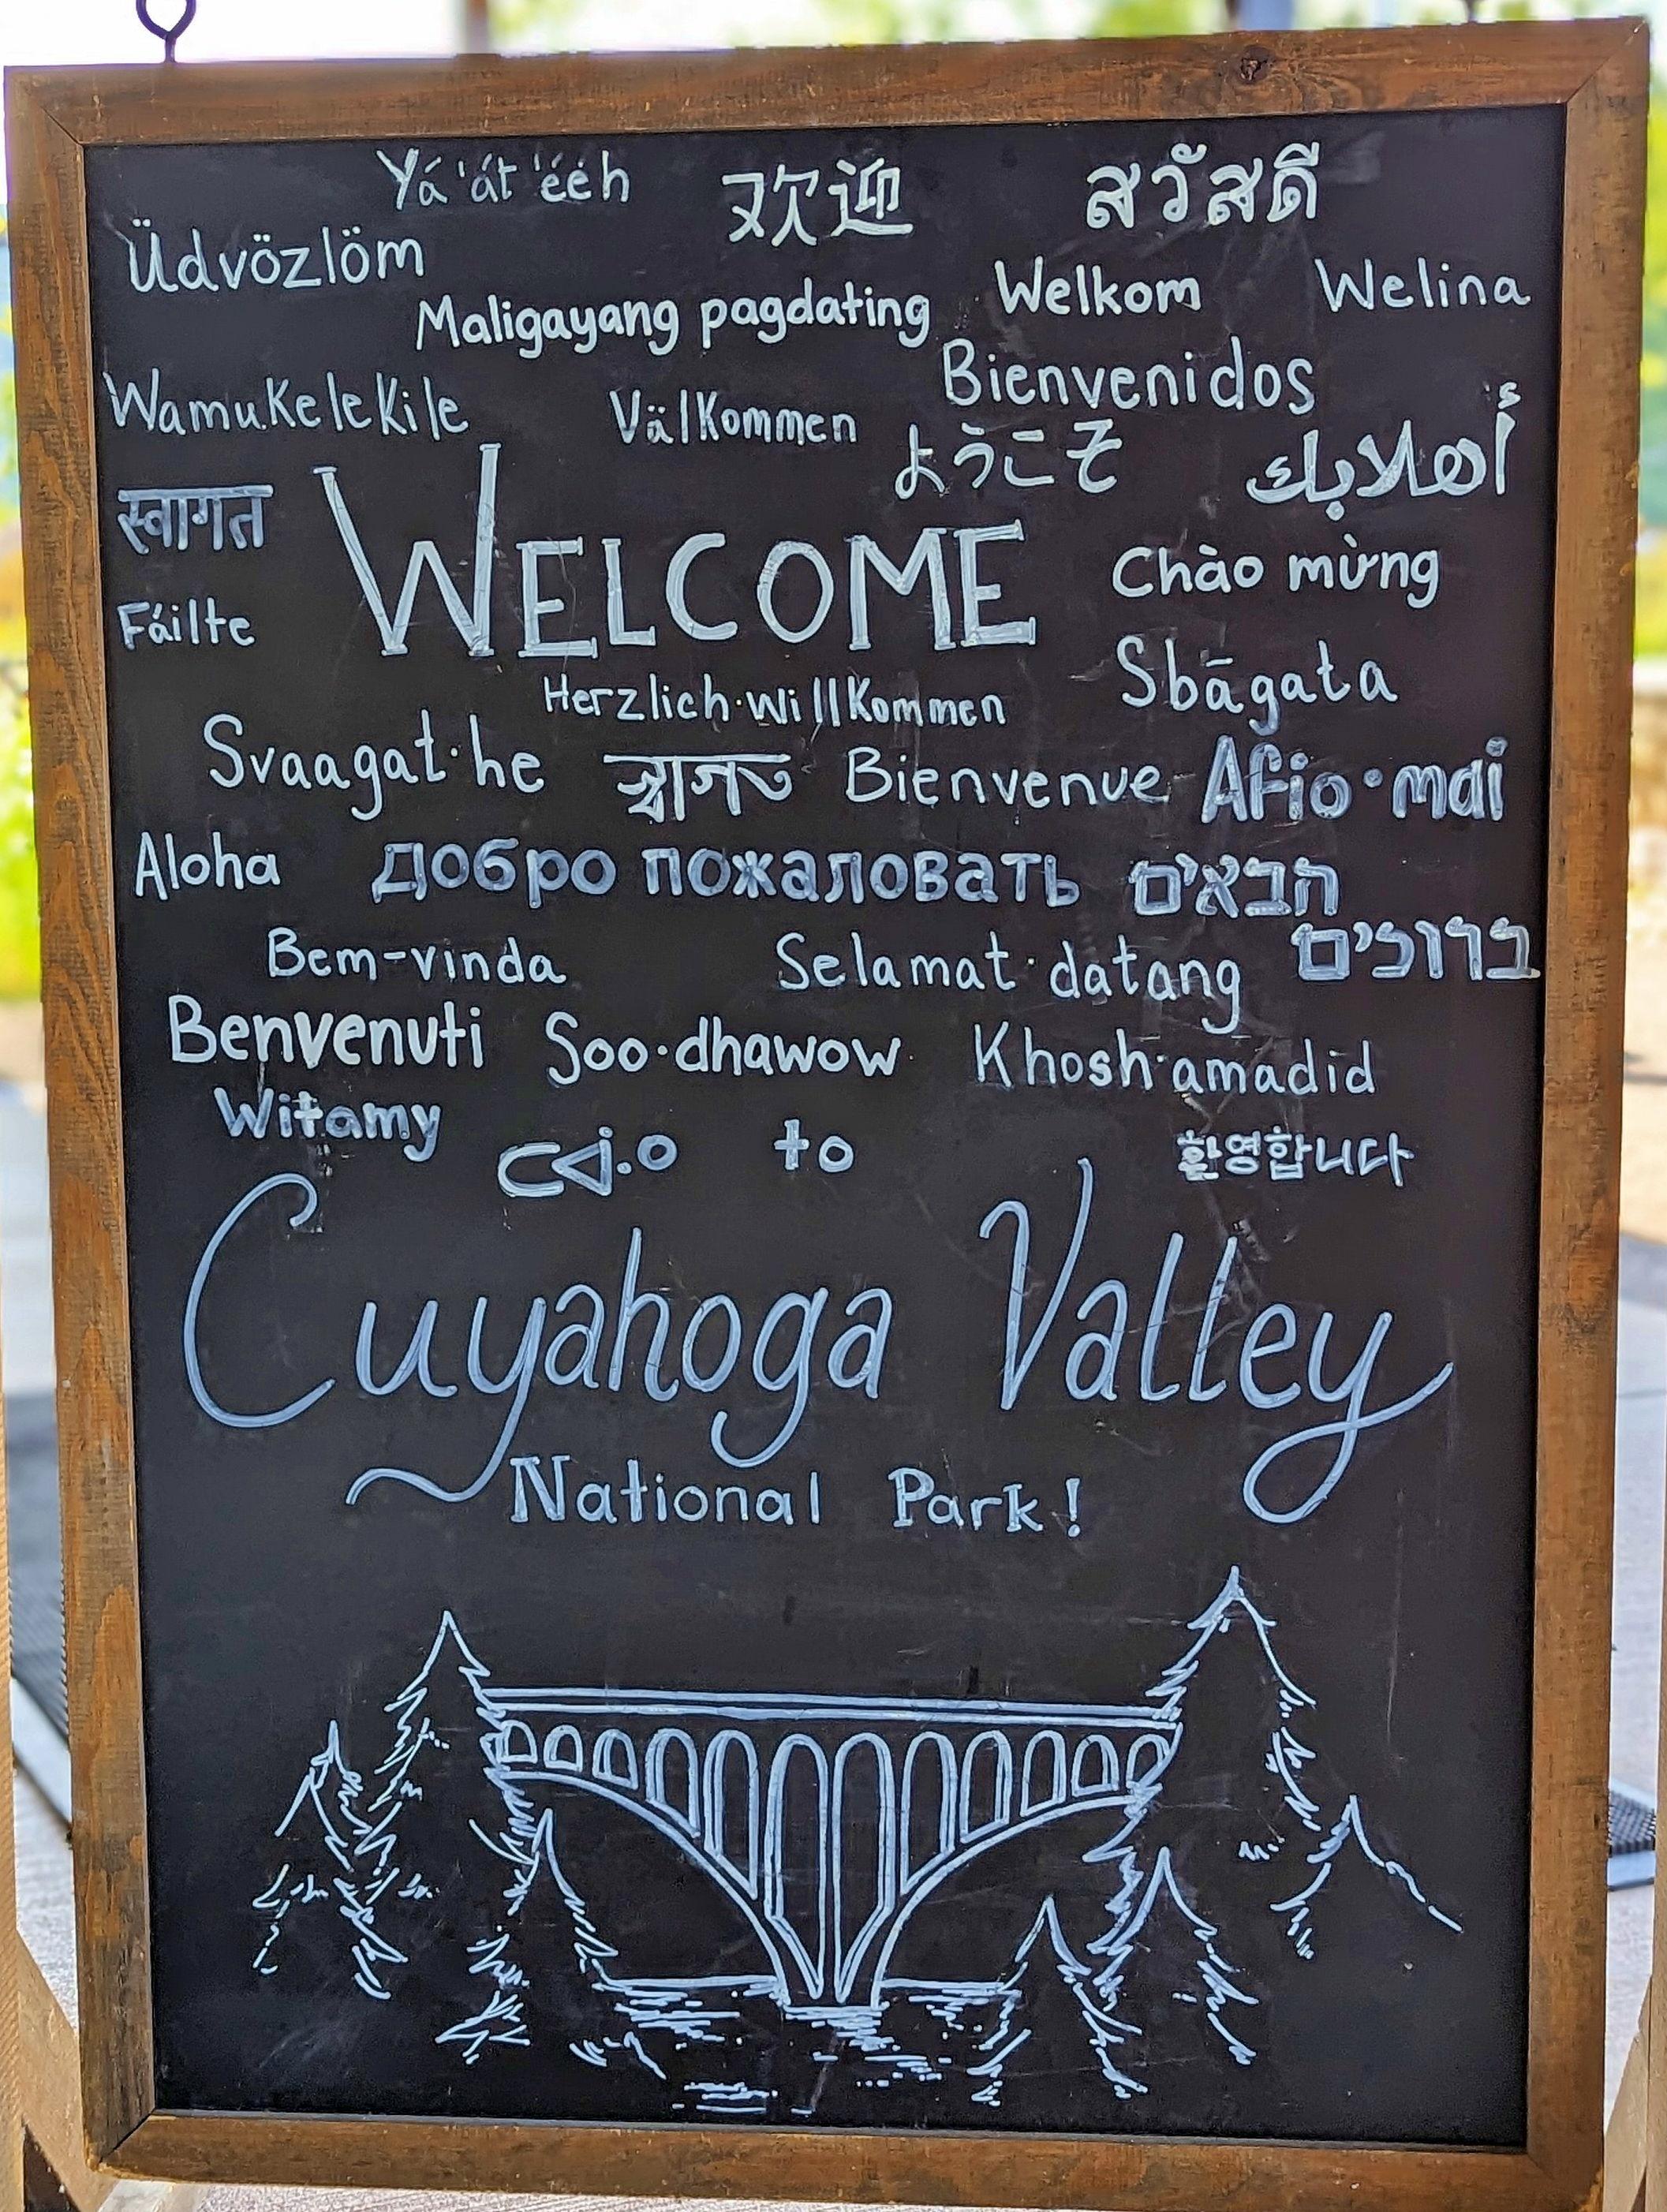 Yá'át'ééh 欢迎 สวัสดี
Üdvözlöm
Maligayang pagdating Welkom Welina
Wamukelekile Välkommen Bienvenidos
ようこそ أهلا بك
स्वागत WELCOME Chào mừng
Fáilte
Herzlich·willkommen Sbāgata
Svaagat·he স্বাগত Bienvenue Afio·mai
Aloha Добро пожаловать הבאים
Bem-vinda Selamat·datang ברוכים
Benvenuti Soo·dhawow Khosh·amadid
Witamy ᑕᐛ·ᐤ to 환영합니다
Cuyahoga Valley
National Park!